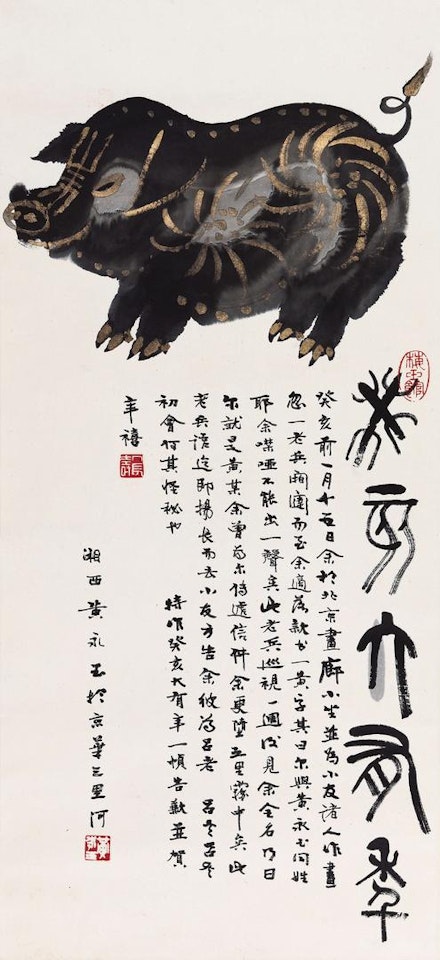 癸亥大有年
癸亥前一月十五日余於北京畫廊小坐並為小友諸人作畫
忽一老兵闖闈而至余適落款书一黄字其曰尔與黄永玉同姓
耶余噤啞不能出一聲矣此老兵巡視一週後見余全名乃曰
尔就是黄某余曾为尔傳遞信件余更墮五里霧中矣此
老兵語迄即揚長而去小友方告余彼為呂老 呂老呂老
初會何其怪秘也 特作癸亥大有年一幀告歉並賀
年禧
湘西黄永玉於京華三里河